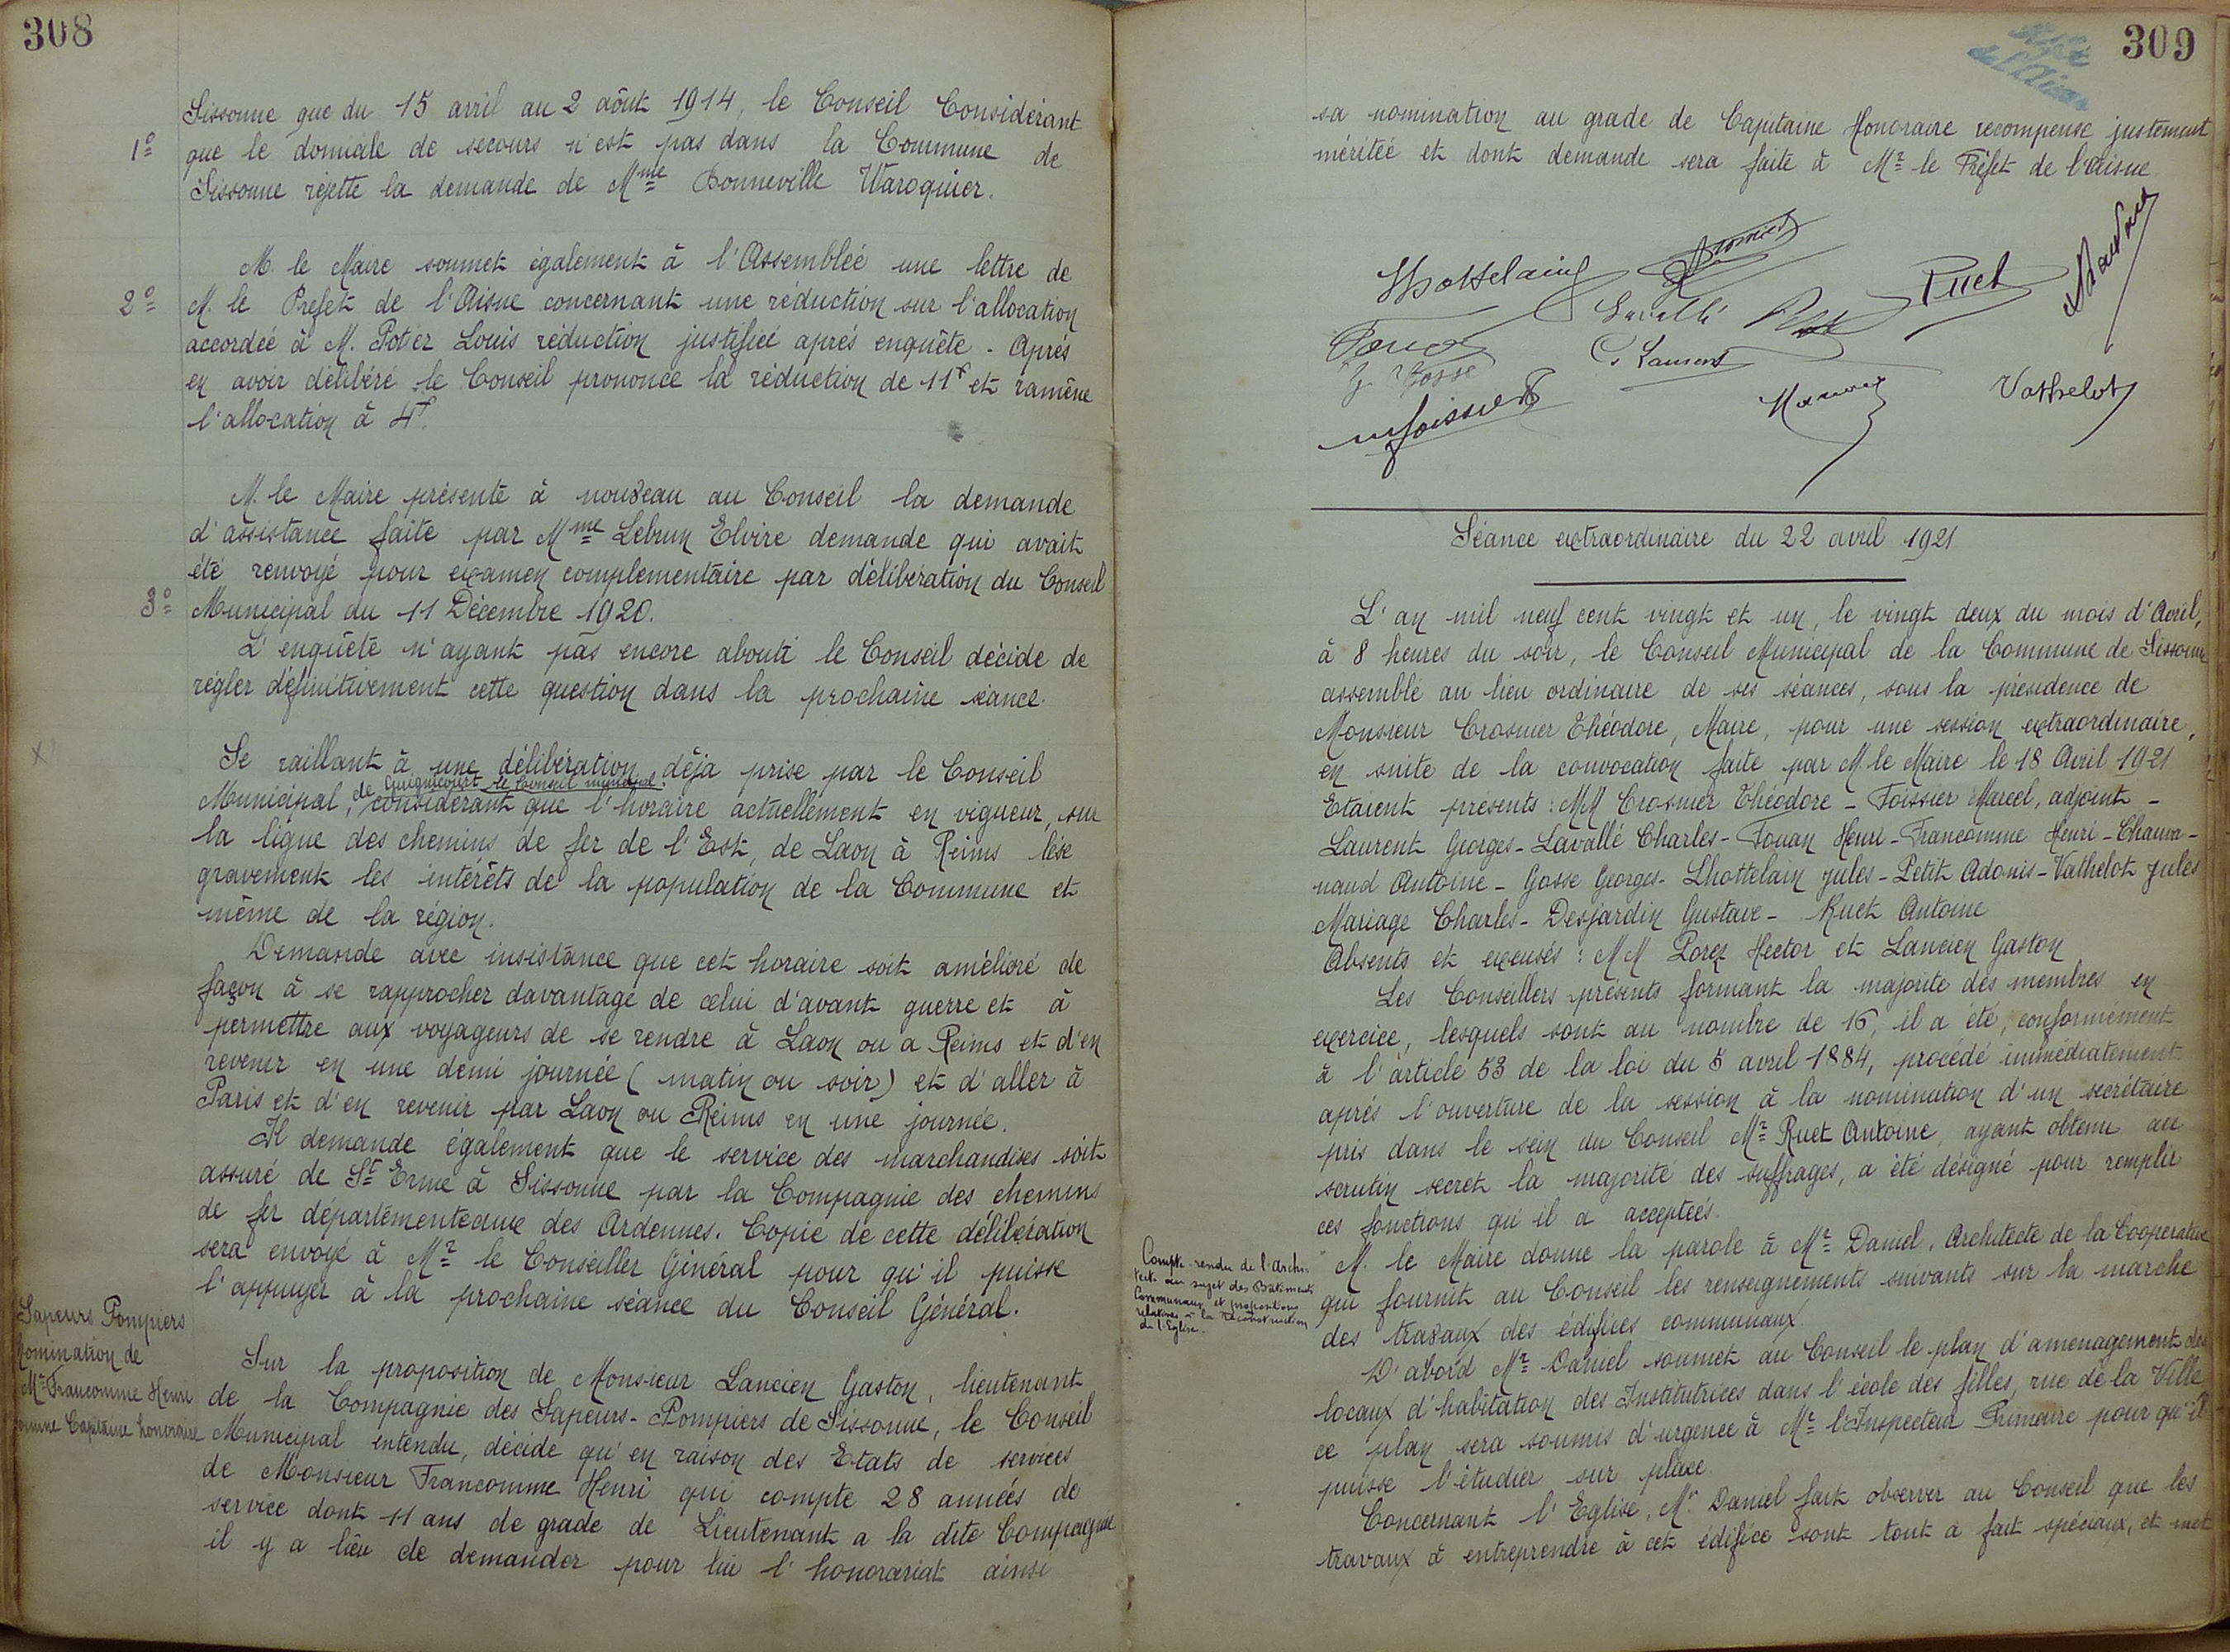 308
Sissonne que du 15 avril au 2 août 1914, le Conseil Considérant
1º que le domicile de secours n'est pas dans la Commune de
Sissonne rejette la demande de Mme Bonneville Waroquier.
M. le Maire soumet également à l'Assemblée une lettre de
2º M. le Préfet de l'Aisne concernant une réduction sur l'allocation
accordée à M. Potier Louis réduction justifiée après enquête. Après
en avoir délibéré le Conseil prononce la réduction de 11f et ramène
l'allocation à 4f.
M. le Maire présente à nouveau au Conseil la demande
d'assistance faite par Mme Lebrun Elvire demande qui avait
été renvoyé pour examen complementaire par délibération du Conseil
3º Municipal du 11 Décembre 1920.
L'enquête n'ayant pas encore abouti le Conseil décide de
régler définitivement cette question dans la prochaine séance.
Se raillant à une délibération déjà prise par le Conseil
de Guignicourt le Conseil municipal
Municipal, considérant que l'horaire actuellement en vigueur, sur
la ligne des chemins de fer de l'Est, de Laon à Reims lèse
gravement les intérêts de la population de la Commune et
même de la région.
Demande avec insistance que cet horaire soit amélioré de
façon à se rapprocher davantage de celui d'avant guerre et à
permettre aux voyageurs de se rendre à Laon ou a Reims et d'en
revenir en une demi journée (matin ou soir) et d'aller à
Paris et d'en revenir par Laon ou Reims en une journée.
Il demande également que le service des marchandises soit
assuré de St Erme à Sissonne par la Compagnie des chemins
de fer départementeaux des Ardennes. Copie de cette délibération
sera envoyé à Mr le Conseiller Général pour qu'il puisse
l'appuyer à la prochaine séance du Conseil Général.
Sapeurs Pompiers
Nomination de
Mr Francomme Henri
comme Capitaine honoraire
Sur la proposition de Monsieur Lancien Gaston, lieutenant
de la Compagnie des Sapeurs-Pompiers de Sissonne, le Conseil
Municipal entendu, décide qu'en raison des Etats de services
de Monsieur Francomme Henri qui compte 28 années de
service dont 11 ans de grade de Lieutenant a la dite Compagnie
il y a lieu de demander pour lui l'honorariat ainsi
309
de l'Aisne
sa nomination au grade de Capitaine Honoraire recompense justement
méritée et dont demande sera faite à Mr le Préfet de l'Aisne
Lhottelain
Crosnier
Ruet
Lavallé
Fouan
G. Laurent
G. Gosse
M Foissier
Vathelot
Séance extraordinaire du 22 avril 1921
L'an mil neuf cent vingt et un, le vingt deux du mois d'Avril,
à 8 heures du soir, le Conseil Municipal de la Commune de Sissonne
assemblé au lieu ordinaire de ses séances, sous la présidence de
Monsieur Crosnier Théodore, Maire, pour une session extraordinaire,
en suite de la convocation faite par M. le Maire le 18 Avril 1921
Etaient présents : MM Crosnier Théodore - Foissier Marcel, adjoint -
Laurent Georges - Lavallé Charles - Fouan Henri - Francomme Henri - Chauva-
naud Antoine - Gosse Georges - Lhottelain Jules - Petit Adonis - Vathelot Jules
Mariage Charles - Desjardin Gustave - Ruet Antoine
Absents et excusés : MM Lorez Hector et Lancien Gaston
Les Conseillers présents formant la majorité des membres en
exercice, lesquels sont au nombre de 16, il a été, conformément
à l'article 53 de la loi du 5 avril 1884, procédé immédiatement
après l'ouverture de la session à la nomination d'un secrétaire
pris dans le sein du Conseil Mr Ruet Antoine, ayant obtenu au
scrutin secret la majorité des suffrages, a été désigné pour remplir
ces fonctions qu'il a acceptées.
Compte-rendu de l'Archi-
tecte au sujet des Bâtiments
Communaux et propositions
relatives à la reconstruction
de l'Eglise.
M. le Maire donne la parole à Mr Daniel, Architecte de la Coopérative
qui fournit au Conseil les renseignements suivants sur la marche
des travaux des édifices communaux.
D'abord Mr Daniel soumet au Conseil le plan d'aménagement des
locaux d'habitation des Institutrices dans l'école des filles, rue de la Ville
ce plan sera soumis d'urgence à Mr l'Inspecteur Primaire pour qu'il
puisse l'étudier sur place.
Concernant l'Eglise, Mr Daniel fait observer au Conseil que les
travaux à entreprendre à cet édifice sont tout à fait spéciaux, et met